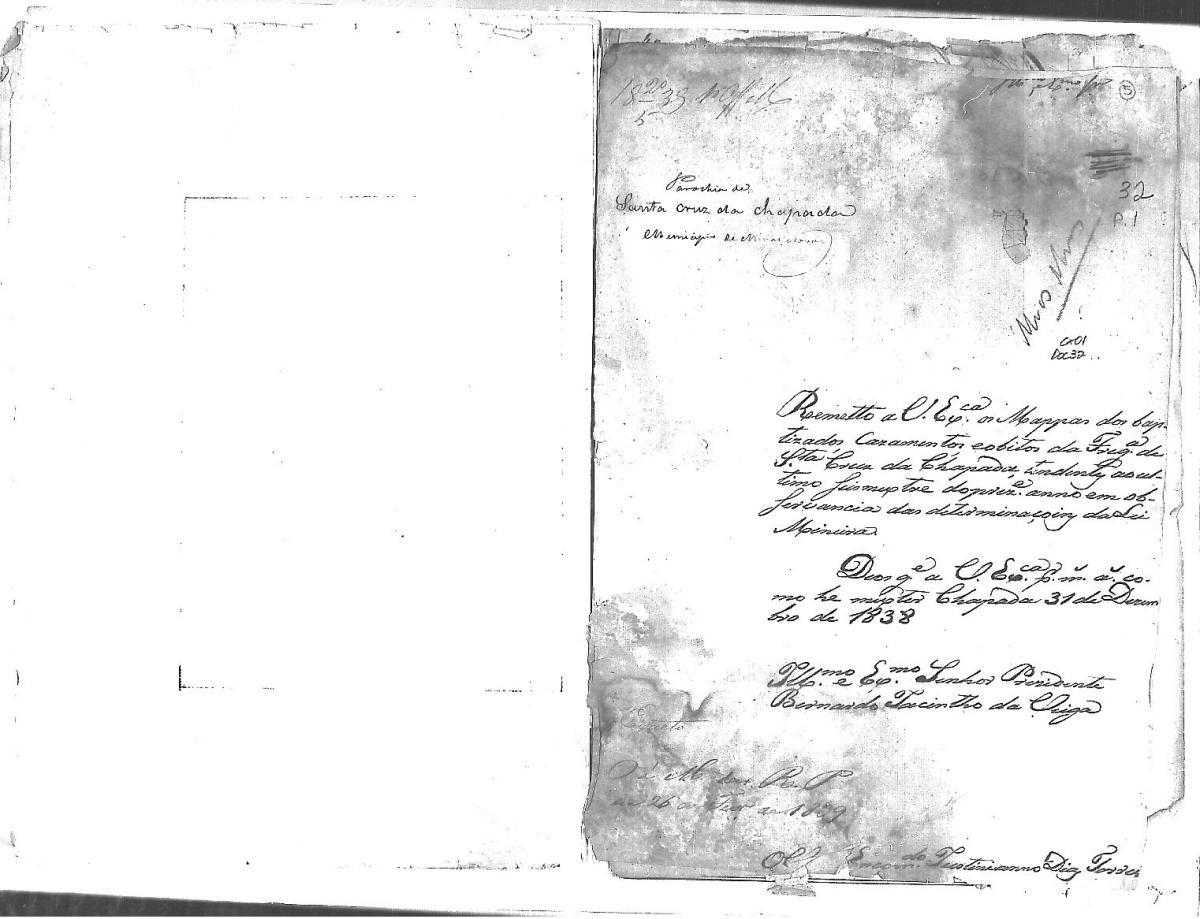 5
32
P. 1
Parochia de
Santa Cruz da Chapada
Municipio de Minas Novas
Minas Novas
CX01
Doc 32
Remetto a V. Exca. os Mappas dos bap-
tizados Cazamentos, e obitos da Frega. de
Sta. Cruz da Chapada, tendentes ao ul-
timo Siemextre do preze. anno em ob-
servancia das determinaçoins da Lei
Mineira.
Deos ge. a V. Exca. p. m. a. co-
mo he mister Chapada 31 de Dezem
bro de 1838
Illmo. e Exmo. Senhor Prezidente
Bernardo Jacintho da Veiga
26 de 1839
Encomdo. Justinianno Dias Torres